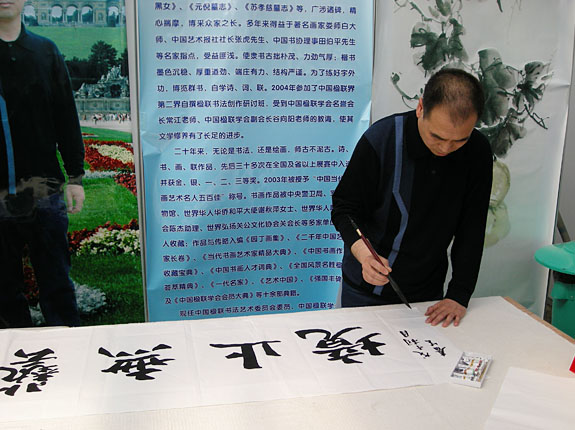 黑女》、《元倪墓志》、《苏孝慈墓志》等，广涉诸碑，精
心揣摩，博采众家之长。多年来得益于著名画家娄师白大
师、中国艺术报社社长张虎先生、中国书协理事田伯平先生
等名家指点，受益匪浅。使隶书古拙朴茂、力劲气厚；楷书
墨色沉稳、厚重遒劲、端庄有力、结构严谨。为了练好字外
功、博览群书，自学诗、词、联。2004年参加了中国楹联界
第二界自撰楹联书法创作研讨班，受到中国楹联学会名誉会
长常江老师、中国楹联学会副会长谷向阳老师的教诲，使其
文学修养有了长足的进步。
二十年来，无论是书法、还是绘画，师古不泥古。诗、
书、画、联作品，先后三十多次在全国及省以上展赛中入
并获金、银、一、二、三等奖。2003年被授予“中国当代
画艺术名人五百佳”称号。书画作品被中央警卫局、
物馆、世界华人华侨和平大使谢秋萍女士、世界华人
会陈杰助理、世界弘扬关公文化协会关会长等多家单
人收藏，作品与传略入编《园丁画集》、《二千年中国艺
家长卷》、《当代书画艺术家精品大典》、《中国书画作
收藏宝典》、《中国书画人才词典》、《全国风景名胜楹
荟萃精典》、《一代名家》、《艺术中国》、《强国丰碑
及《中国楹联学会会员大典》等十余部典籍。
现任中国楹联书法艺术委员会委员、中国楹联学
藝無止境